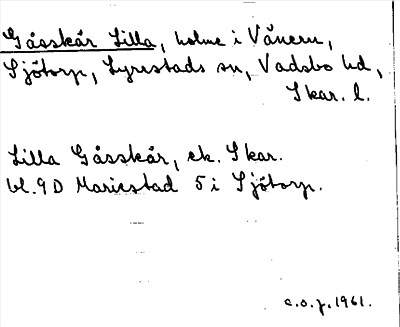 Gåsskär Lilla, holme i Vänern,
Sjötorp, Lyrestads sn, Vadsbo hd,
Skar. l.
Lilla Gåsskär, ek. Skar.
bl. 9D Mariestad 5i Sjötorp.
c.o.j. 1961.